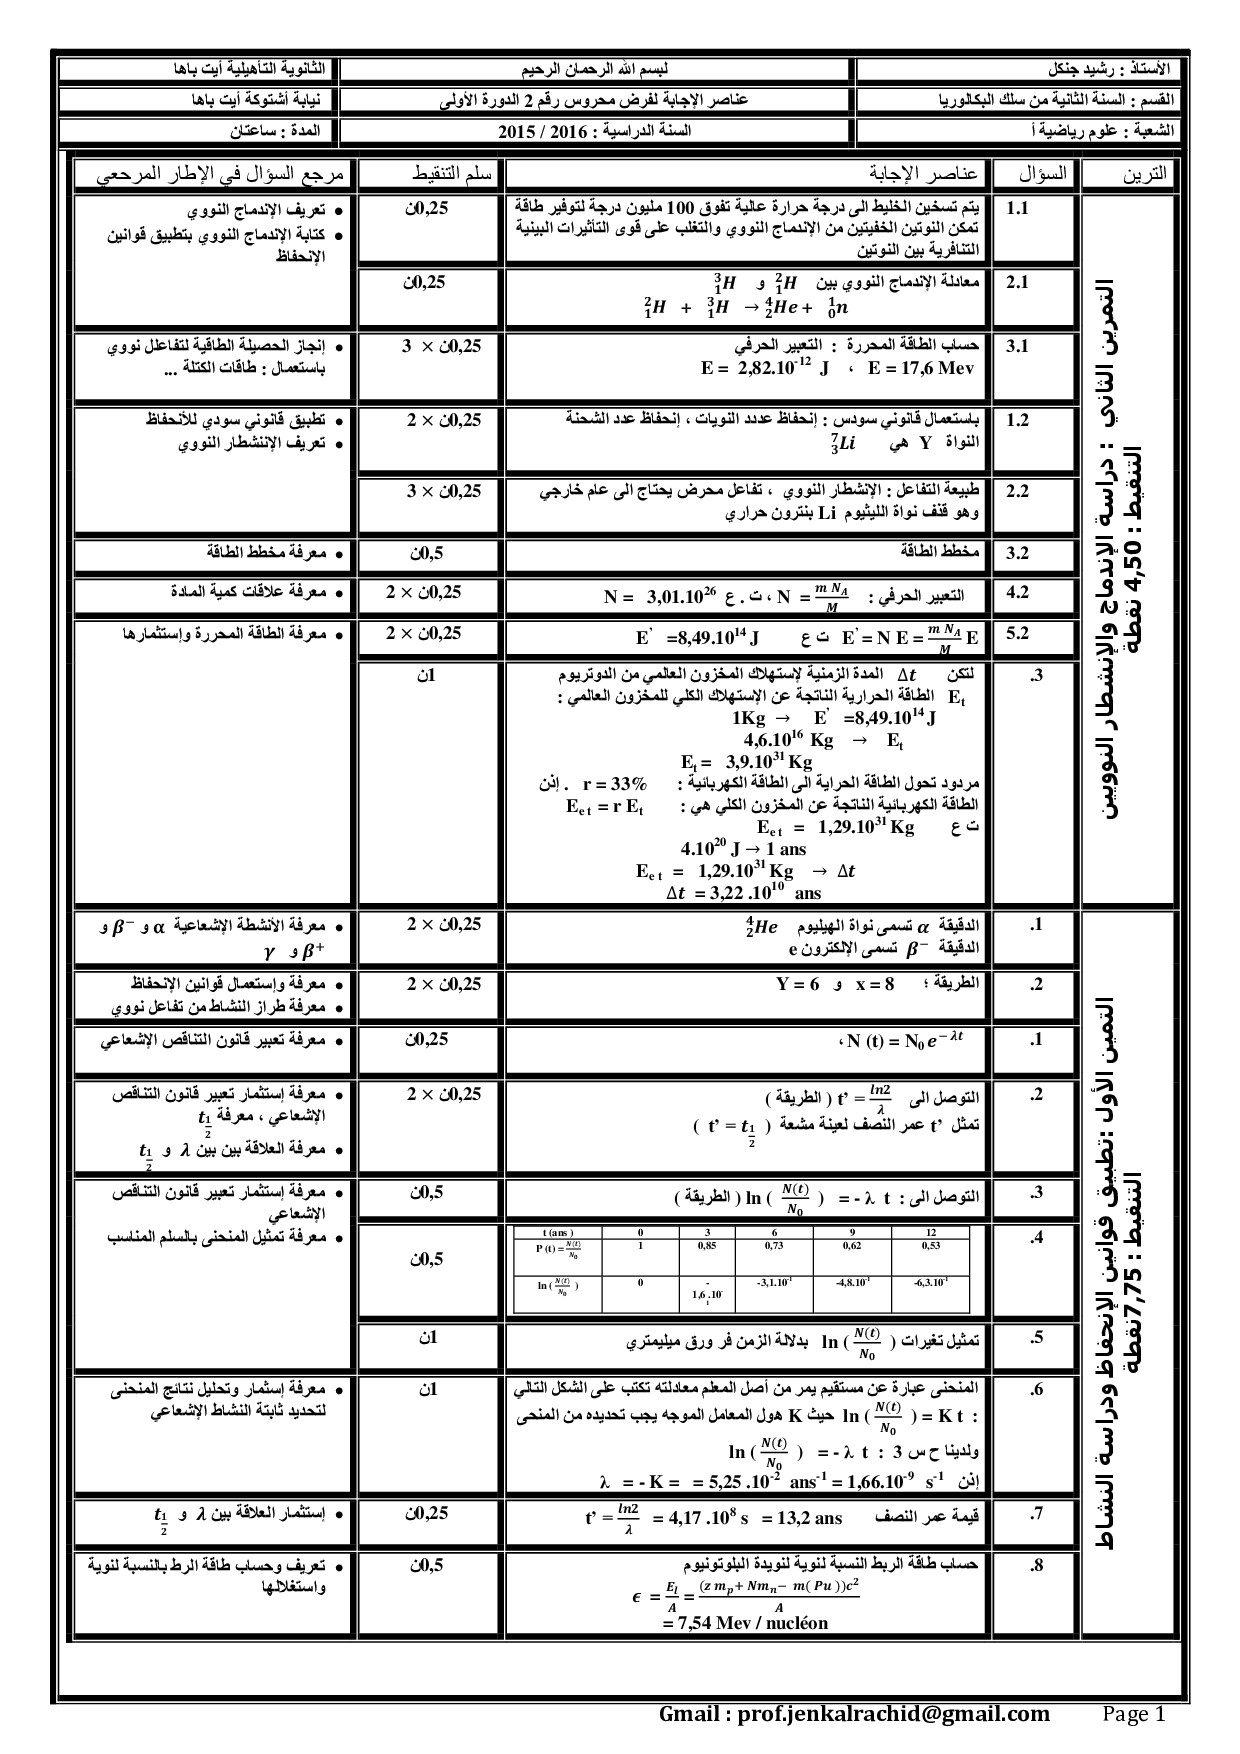 الأستاذ : رشيد جنكل
لبسم الله الرحمان الرحيم
الثانوية التأهيلية أيت باها
القسم : السنة الثانية من سلك البكالوريا
عناصر الإجابة لفرض محروس رقم 2 الدورة الأولى
نيابة أشتوكة أيت باها
الشعبة : علوم رياضية أ
السنة الدراسية : 2016 / 2015
المدة : ساعتان
الترين
السؤال
عناصر الإجابة
سلم التنقيط
مرجع السؤال في الإطار المرحعي
التمرين الثاني : دراسة الإندماج والإنشطار النوويين
التنقيط : 4,50 نقطة
1.1
يتم تسخين الخليط الى درجة حرارة عالية تفوق 100 مليون درجة لتوفير طاقة
تمكن النوتين الخفيتين من الإندماج النووي والتغلب على قوى التأثيرات البينية
التنافرية بين النوتين
0,25ن
• تعريف الإندماج النووي
• كتابة الإندماج النووي بتطبيق قوانين
الإنحفاظ
2.1
معادلة الإندماج النووي بين ²₁H و ³₁H
²₁H + ³₁H → ⁴₂He + ¹₀n
0,25ن
3.1
حساب الطاقة المحررة : التعبير الحرفي
E = 2,82.10⁻¹² J ، E = 17,6 Mev
0,25ن × 3
• إنجاز الحصيلة الطاقية لتفاعلل نووي
باستعمال : طاقات الكتلة ...
1.2
باستعمال قانوني سودس : إنحفاظ عددد النويات ، إنحفاظ عدد الشحنة
النواة Y هي ⁷₃Li
0,25ن × 2
• تطبيق قانوني سودي للأنحفاظ
• تعريف الإننشطار النووي
2.2
طبيعة التفاعل : الإنشطار النووي ، تفاعل محرض يحتاج الى عام خارجي
وهو قذف نواة الليثيوم Li بنترون حراري
0,25ن × 3
3.2
مخطط الطاقة
0,5ن
• معرفة مخطط الطاقة
4.2
التعبير الحرفي : N = m N_A / M ، ت . ع N = 3,01.10²⁶
0,25ن × 2
• معرفة علاقات كمية المادة
5.2
E’ = N E = (m N_A / M) E ت ع E’ =8,49.10¹⁴ J
0,25ن × 2
• معرفة الطاقة المحررة وإستثمارها
3.
لتكن Δt المدة الزمنية لإستهلاك المخزون العالمي من الدوتريوم
E_t الطاقة الحرارية الناتجة عن الإستهلاك الكلي للمخزون العالمي :
1Kg → E’ =8,49.10¹⁴ J
4,6.10¹⁶ Kg → E_t
E_t = 3,9.10³¹ Kg
مردود تحول الطاقة الحراية الى الطاقة الكهربائية : r = 33% . إذن
الطاقة الكهربائية الناتجة عن المخزون الكلي هي : E_e t = r E_t
ت ع E_e t = 1,29.10³¹ Kg
4.10²⁰ J → 1 ans
E_e t = 1,29.10³¹ Kg → Δt
Δt = 3,22 .10¹⁰ ans
1ن
التمين الأول :تطبيق قوانين الإنحفاظ ودراسة النشاط
التنقيط : 7,75نقطة
1.
الدقيقة α تسمى نواة الهيليوم ⁴₂He
الدقيقة β⁻ تسمى الإلكترون e
0,25ن × 2
• معرفة الأنشطة الإشعاعية α و β⁻ و
β⁺ و γ
2.
الطريقة ؛ x = 8 و Y = 6
0,25ن × 2
• معرفة وإستعمال قوانين الإنحفاظ
• معرفة طراز النشاط من تفاعل نووي
1.
N (t) = N₀ e^(−λt) ،
0,25ن
• معرفة تعبير قانون التناقص الإشعاعي
2.
التوصل الى t’ = ln2 / λ ( الطريقة )
تمثل t’ عمر النصف لعينة مشعة ( t’ = t_1/2 )
0,25ن × 2
• معرفة إستثمار تعبير قانون التناقص
الإشعاعي ، معرفة t_1/2
• معرفة العلاقة بين بين λ و t_1/2
3.
التوصل الى : ln ( N(t)/N₀ ) = - λ t ( الطريقة )
0,5ن
• معرفة إستثمار تعبير قانون التناقص
الإشعاعي
• معرفة تمثيل المنحنى بالسلم المناسب
4.
t (ans ) 0 3 6 9 12
P (t) = N(t)/N₀ 1 0,85 0,73 0,62 0,53
ln ( N(t)/N₀ ) 0 -1,6 .10⁻¹ -3,1.10⁻¹ -4,8.10⁻¹ -6,3.10⁻¹
0,5ن
5.
تمثيل تغيرات ln ( N(t)/N₀ ) بدلالة الزمن فر ورق ميليمتري
1ن
6.
المنحنى عبارة عن مستقيم يمر من أصل المعلم معادلته تكتب على الشكل التالي
: ln ( N(t)/N₀ ) = K t حيث K هول المعامل الموجه يجب تحديده من المنحى
ولدينا ح س 3 : ln ( N(t)/N₀ ) = - λ t
إذن λ = - K = = 5,25 .10⁻² ans⁻¹ = 1,66.10⁻⁹ s⁻¹
1ن
• معرفة إستثمار وتحليل نتائج المنحنى
لتحديد ثابتة النشاط الإشعاعي
7.
قيمة عمر النصف t’ = ln2 / λ = 4,17 .10⁸ s = 13,2 ans
0,25ن
• إستثمار العلاقة بين λ و t_1/2
8.
حساب طاقة الربط النسبة لنوية لنويدة البلوتونيوم
ϵ = E_l / A = (z m_p + Nm_n − m( Pu ))c² / A
= 7,54 Mev / nucléon
0,5ن
• تعريف وحساب طاقة الرط بالنسبة لنوية
واستغلالها
Gmail : prof.jenkalrachid@gmail.com Page 1